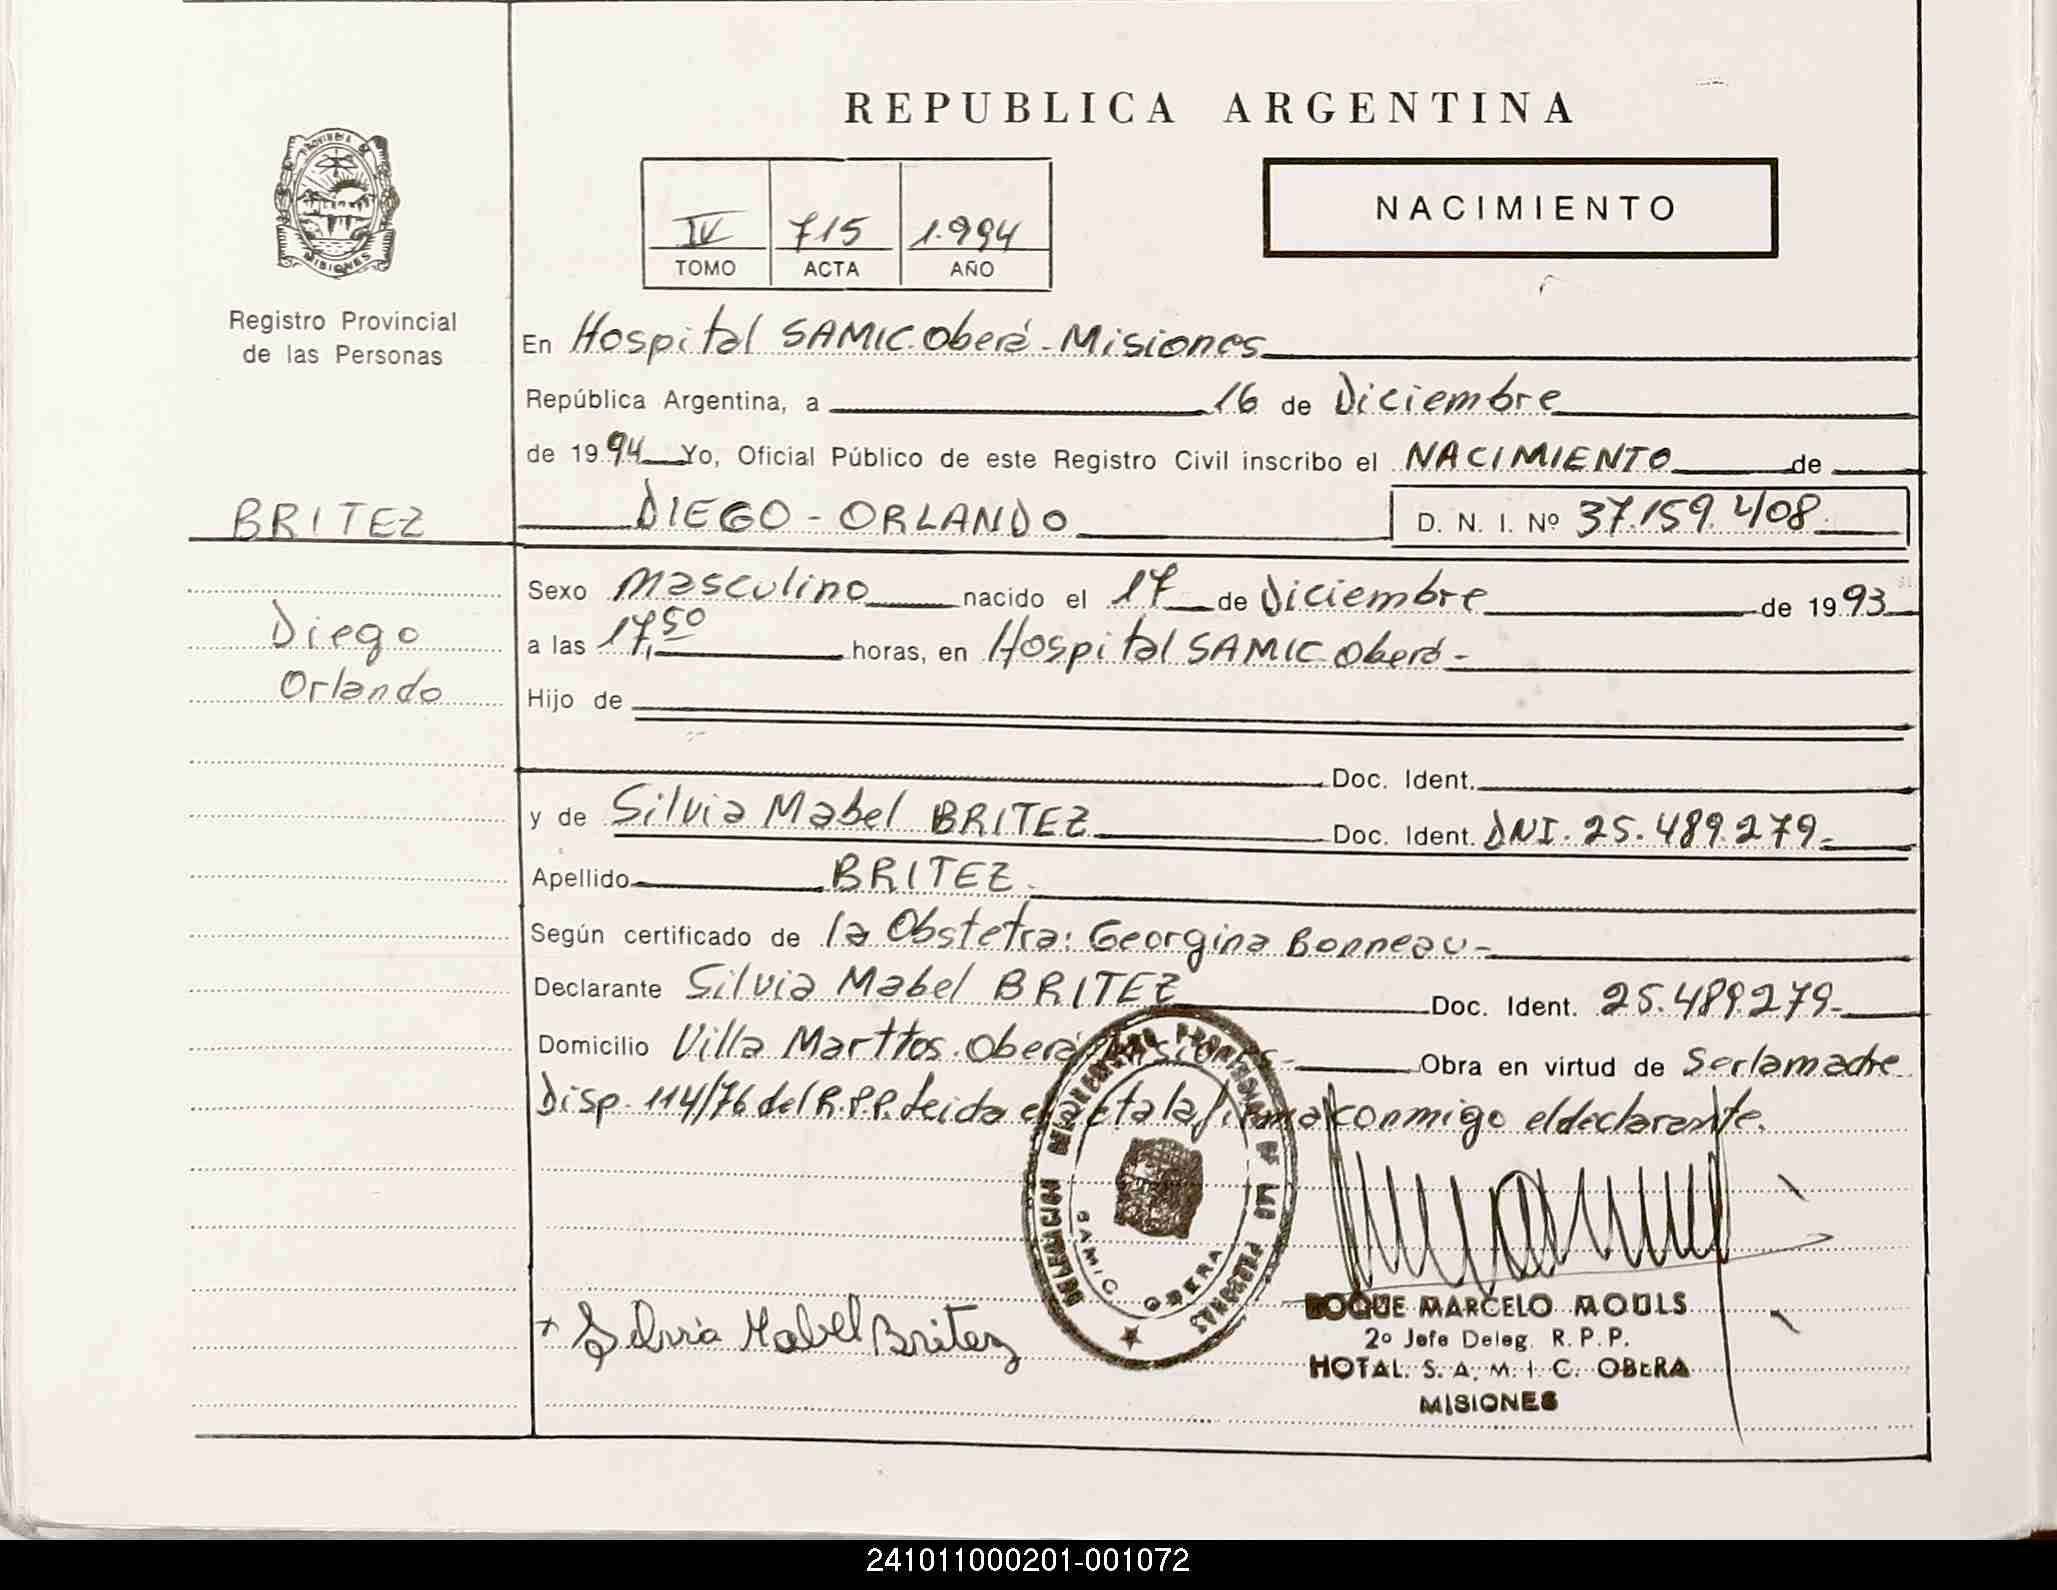 REPUBLICA ARGENTINA
PROVINCIA DE
MISIONES
Registro Provincial
de las Personas
IV 715 1.994
TOMO ACTA AÑO
NACIMIENTO
En Hospital SAMIC. Oberá - Misiones
República Argentina, a 16 de Diciembre
de 1994 Yo, Oficial Público de este Registro Civil inscribo el NACIMIENTO de
BRITEZ
DIEGO - ORLANDO D. N. I. Nº 37.159.408
Diego
Orlando
Sexo Masculino nacido el 17 de Diciembre de 1993
a las 17,50 horas, en Hospital SAMIC Oberá -
Hijo de
Doc. Ident.
y de Silvia Mabel BRITEZ Doc. Ident. DNI. 25.489.279-
Apellido BRITEZ.
Según certificado de la Obstetra: Georgina Bonneau -
Declarante Silvia Mabel BRITEZ Doc. Ident. 25.489.279-
Domicilio Villa Marttos. Oberá Misiones- Obra en virtud de Ser la madre
Disp. 114/76 del R.P.P. Leida el acta la firma conmigo el declarante.
DELEGACION REGISTRO PROVINCIAL DE LAS PERSONAS
SAMIC OBERA
+ Silvia Mabel Britez
ROQUE MARCELO MOULS
2º Jefe Deleg. R. P. P.
HOTAL. S. A. M. I. C. OBERA
MISIONES
241011000201-001072